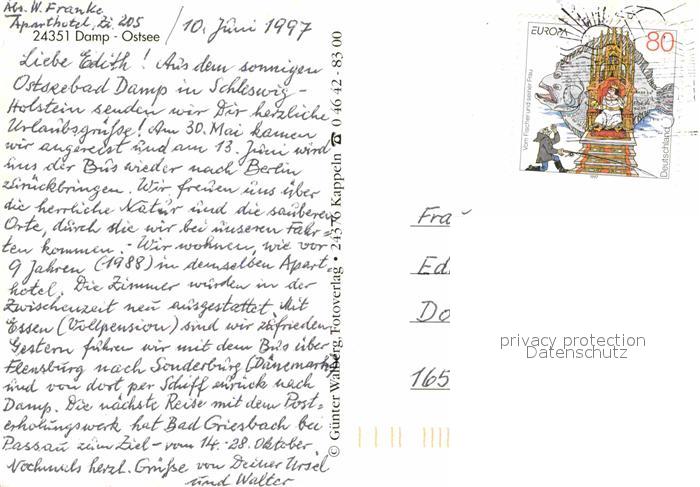 Abs. W. Franke
Aparthotel, Zi. 205
24351 Damp - Ostsee
10. Juni 1997
Liebe Edith! Aus dem sonnigen
Ostseebad Damp in Schleswig-
Holstein senden wir Dir herzliche
Urlaubsgrüße! Am 30. Mai kamen
wir angereist und am 13. Juni wird
uns der Bus wieder nach Berlin
zurückbringen. Wir freuen uns über
die herrliche Natur und die sauberen
Orte, durch die wir bei unseren Fahr-
ten kommen. - Wir wohnen, wie vor
9 Jahren (1988) in demselben Apart-
hotel. Die Zimmer wurden in der
Zwischenzeit neu ausgestattet. Mit
Essen (Vollpension) sind wir zufrieden.
Gestern fuhren wir mit dem Bus über
Flensburg nach Sonderburg (Dänemark)
und von dort per Schiff zurück nach
Damp. Die nächste Reise mit dem Post=
erholungswerk hat Bad Griesbach bei
Passau zum Ziel - vom 14.-28. Oktober.
Nochmals herzl. Grüße von Deiner Ursel
und Walter
© Günter Walberg, Fotoverlag • 24376 Kappeln ☎ 0 46 42 - 83 00
EUROPA
80
Vom Fischer und seiner Frau
Deutschland
1997
Fra
Ed
Do
165
privacy protection
Datenschutz